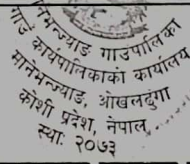 मानेभन्ज्याङ गाउपालिका
गाउँ कार्यपालिकाको कार्यालय
मानेभन्ज्याङ, ओखलढुंगा
कोशी प्रदेश, नेपाल
स्था: २०७३